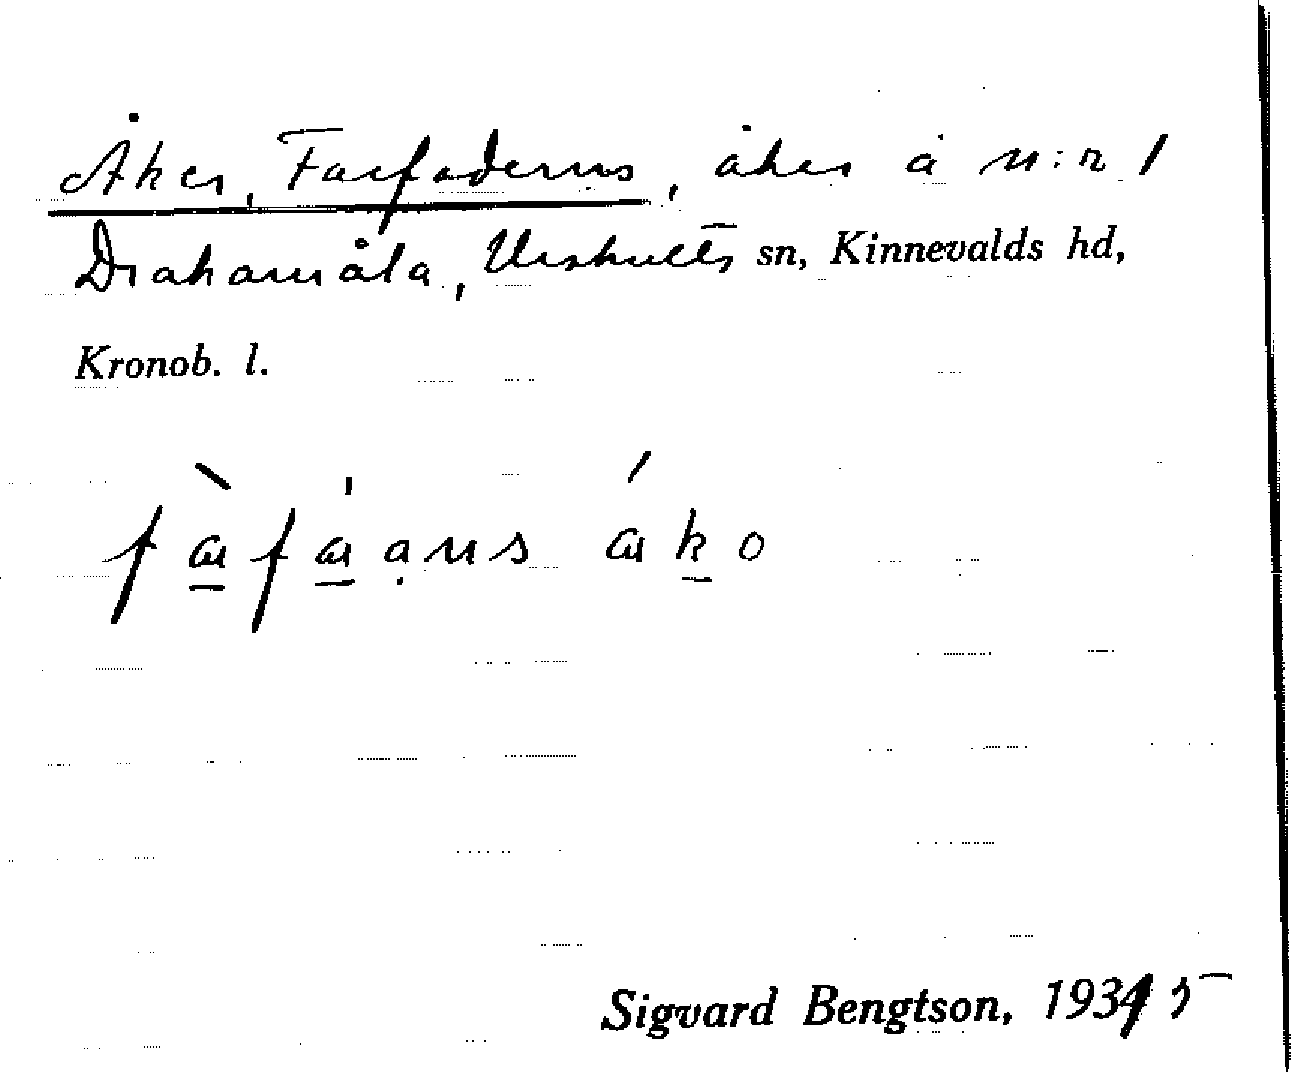 Åker, Farfaderns, åker å n:r 1
Drakamåla, Urshults sn, Kinnevalds hd,
Kronob. l.
Sigvard Bengtson, 1935